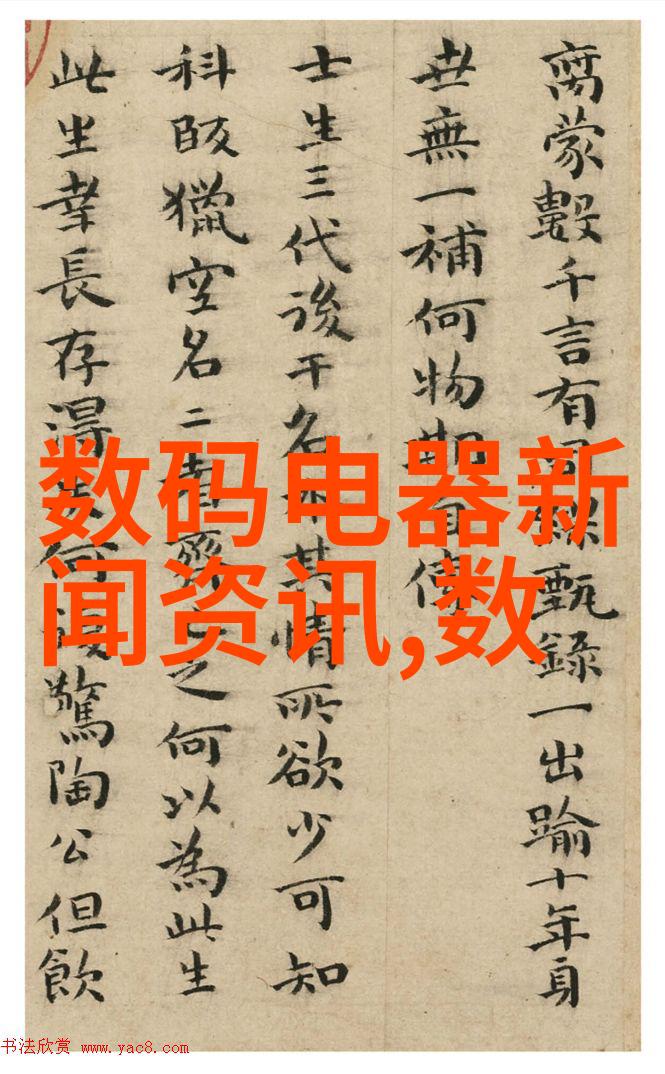 蒙數千言有甄錄一出踰十年身
世無一補何物期自
士生三代後干名其情所欲少可知
科獵空名二者之何以為此生
此生幸長存得何驚陶公但飲
数码电器新
闻资讯,数
书法欣赏 www.yac8.com